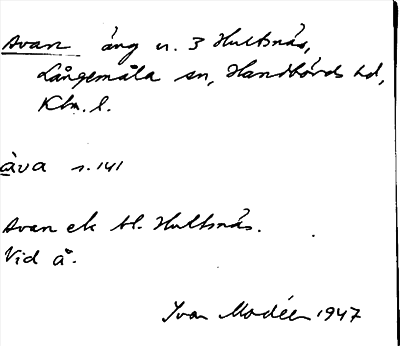 Avan äng n. 3 Hultsnäs,
Långemåla sn, Handbörds hd,
Klm. l.
åva s. 141
Avan ek bl. Hultsnäs.
Vid å.
Ivar Modéer 1947